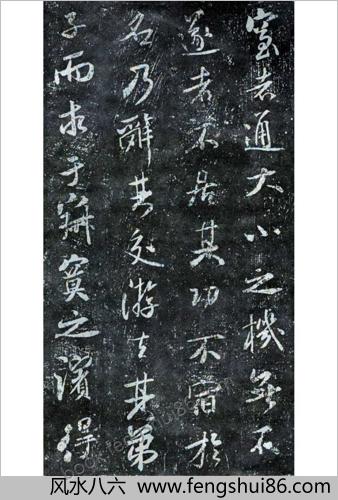 者通大小之機無不
遂者不居其功不宿於
名乃辭其交游去其弟
子而求于寂寞之濱得
风水八六 www.fengshui86.com